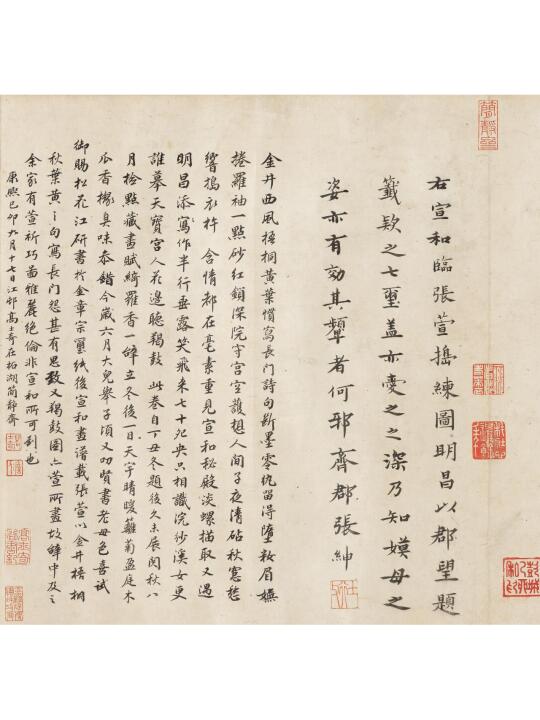 右宣和臨張萱搗練圖明昌以郡望題
籤欵之七璽盖亦愛之之深乃知嫫母之
姿亦有效其顰者何邪齊郡張紳
金井西風梧桐黃葉慣寫長門詩句斷墨零紈留得墮粧眉嫵
捲羅袖一點砂紅鎖深院守宮空護想人間子夜清砧秋窓愁
響搗衣杵 含情都在毫素重見宣和秘殿淡螺描取又過
明昌添寫作半行垂露笑飛来七十二央只相識浣紗溪女更
誰摹天寶宮人花邊聽羯鼓 此卷自丁丑冬題後久未展閱秋八
月檢點藏畫賦綺羅香一闋立冬後一日天宇晴暖蘺菊盈庭木
瓜香櫞臭味叅錯今歲六月大兒舉子頃又叨賢書老母色喜試
御賜松花江研書於金章宗璽紙後宣和畫譜載張萱以金井梧桐
秋葉黃之句寫長門怨甚有思致又羯鼓圖亦萱所畫故闋中及之
余家有萱祈巧圖雅麗絕倫非宣和所可到也
康熙己卯九月十七日江邨高士奇在柘湖簡靜齋